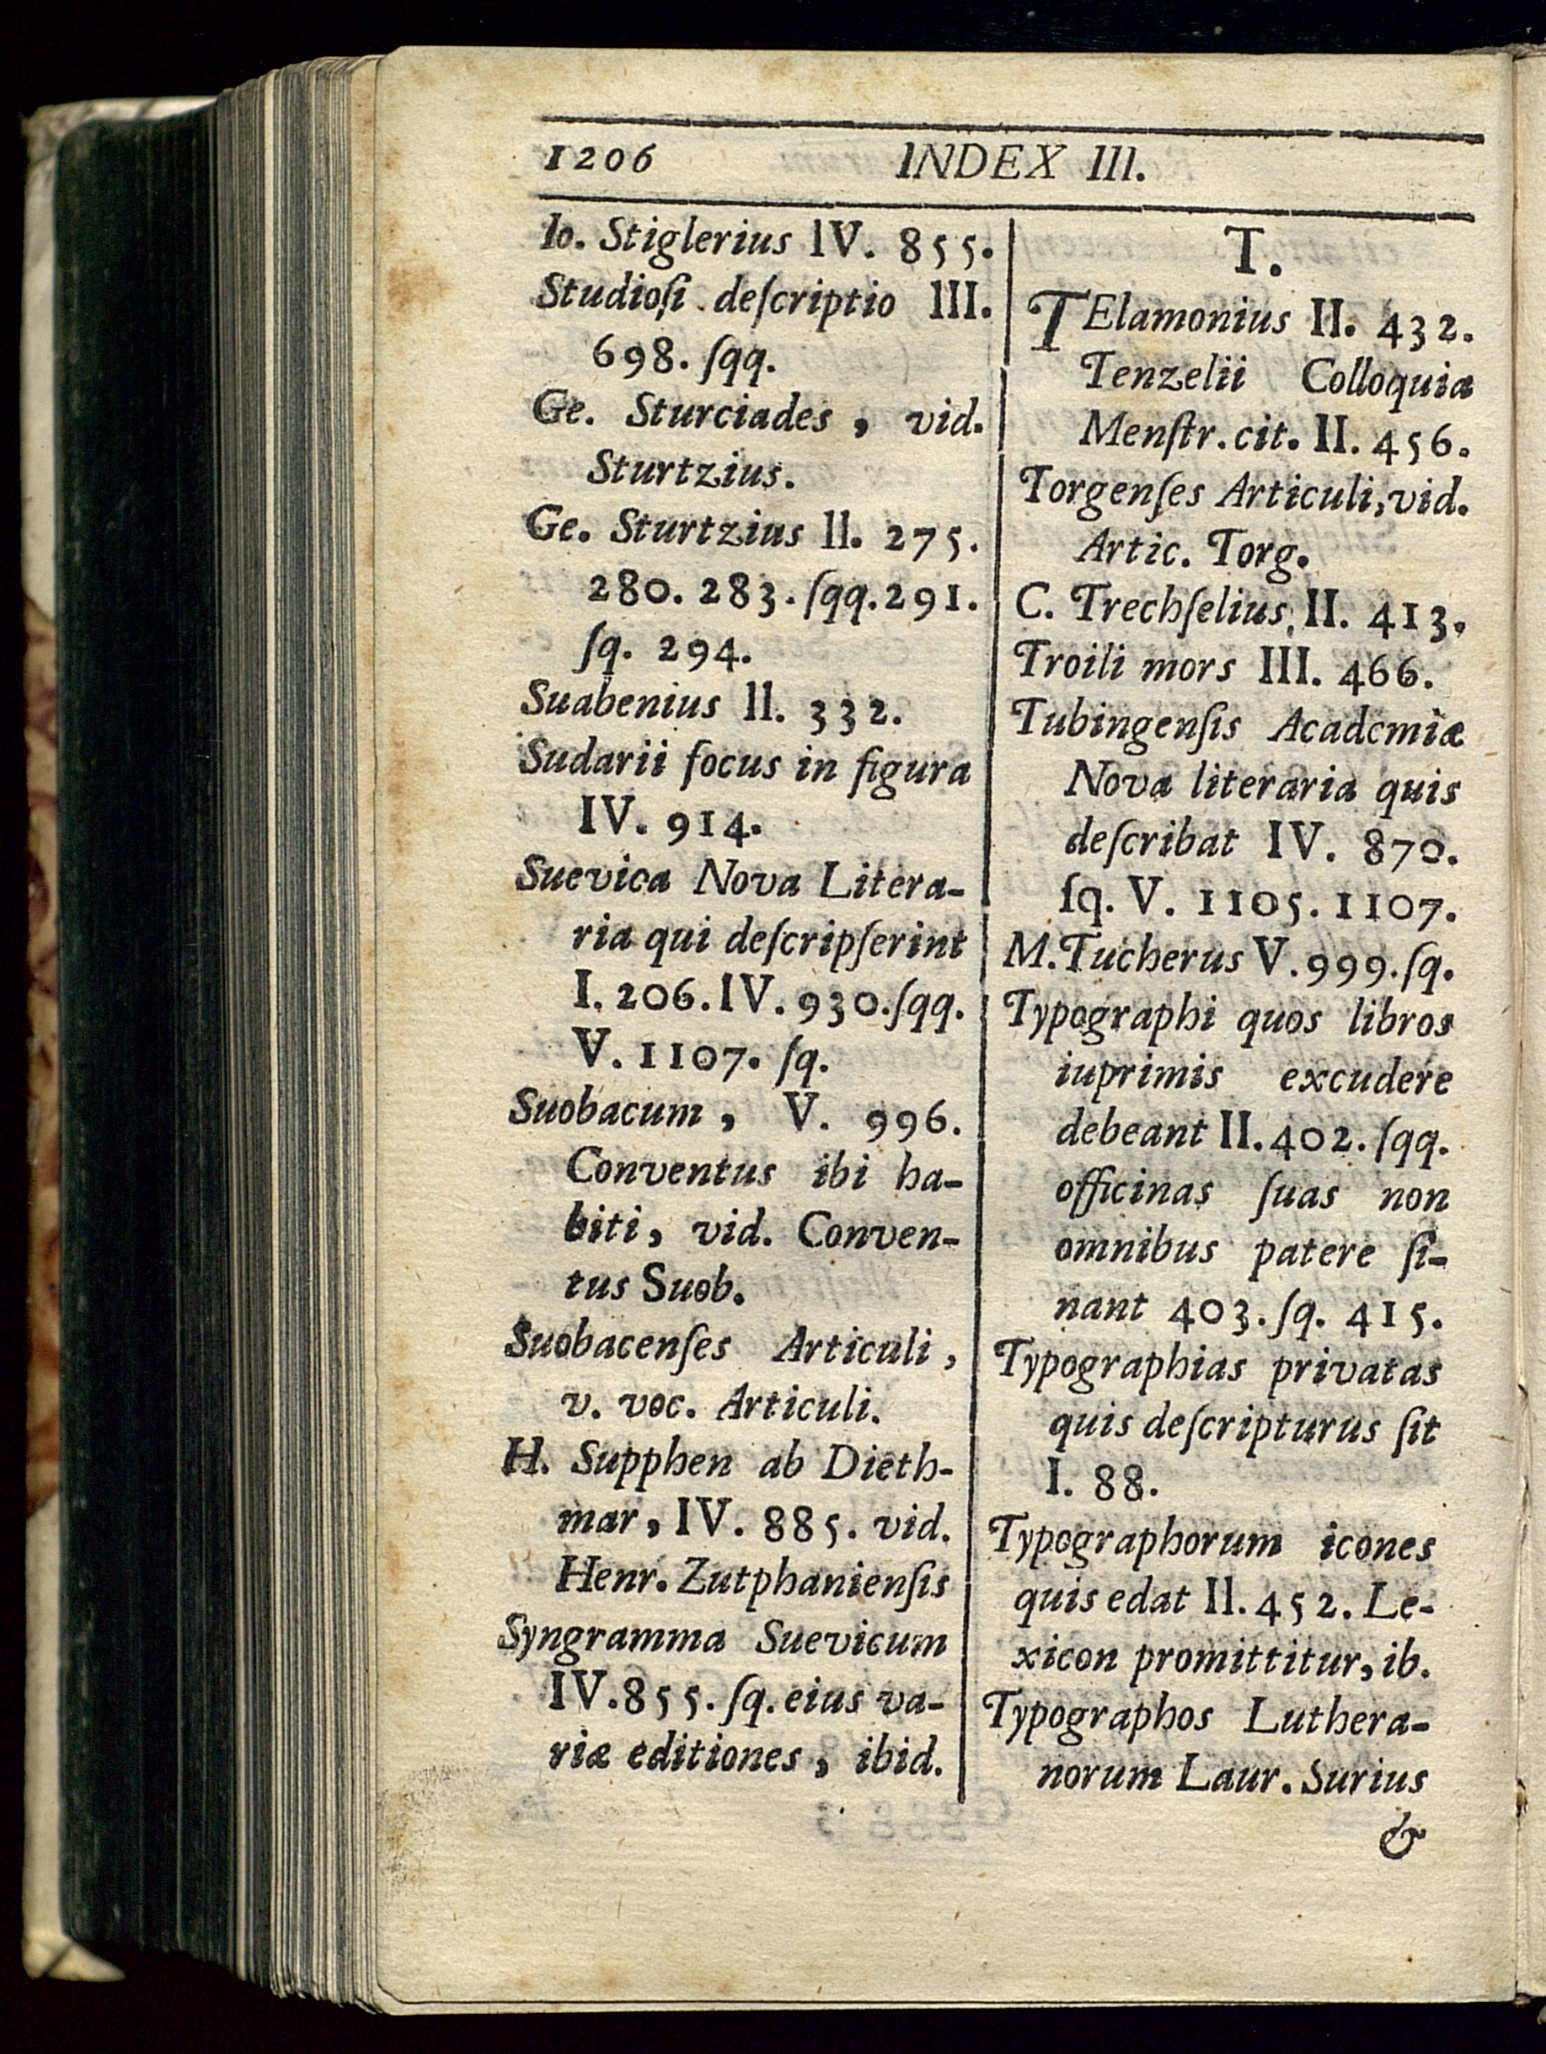 1206 INDEX III.
Io. Stiglerius IV. 855.
Studioſi deſcriptio III.
698. ſqq.
Ge. Sturciades, vid.
Sturtzius.
Ge. Sturtzius II. 275.
280. 283. ſqq. 291.
ſq. 294.
Suabenius II. 332.
Sudarii focus in figura
IV. 914.
Suevica Nova Litera-
ria qui deſcripſerint
I. 206. IV. 930. ſqq.
V. 1107. ſq.
Suobacum, V. 996.
Conventus ibi ha-
biti, vid. Conven-
tus Suob.
Suobacenſes Articuli,
v. voc. Articuli.
H. Supphen ab Dieth-
mar, IV. 885. vid.
Henr. Zutphanienſis
Syngramma Suevicum
IV. 855. ſq. eius va-
riæ editiones, ibid.
T.
TElamonius II. 432.
Tenzelii Colloquia
Menſtr. cit. II. 456.
Torgenſes Articuli, vid.
Artic. Torg.
C. Trechſelius, II. 413.
Troili mors III. 466.
Tubingenſis Academiæ
Nova literaria quis
deſcribat IV. 870.
ſq. V. 1105. 1107.
M. Tucherus V. 999. ſq.
Typographi quos libros
iuprimis excudere
debeant II. 402. ſqq.
officinas ſuas non
omnibus patere ſi-
nant 403. ſq. 415.
Typographias privatas
quis deſcripturus ſit
I. 88.
Typographorum icones
quis edat II. 452. Le-
xicon promittitur, ib.
Typographos Luthera-
norum Laur. Surius
&